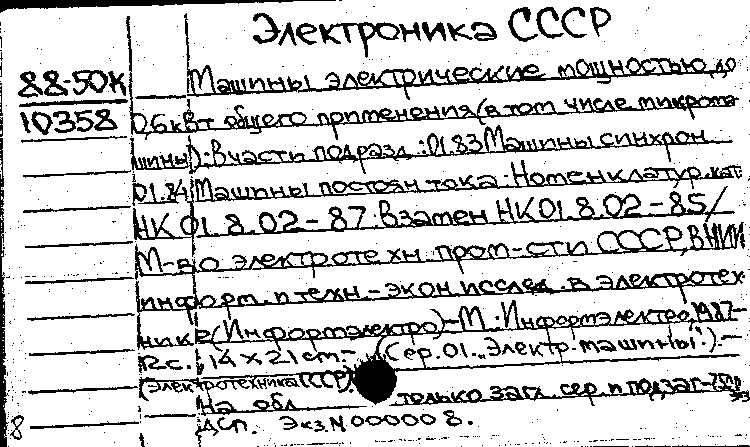 Электроника СССР
88-50К
10358
Машины электрические мощностью до
0,6 кВт общего применения (в том числе микрома
шины): В части подразд.: 01.83 Машины синхрон
01.84 Машины постоян тока. Номенклатур. кат
НК 01.8.02-87. Взамен НК 01.8.02-85/
М-во электротехн. пром-сти СССР, ВНИИ
информ. и техн.-экон исслед. в электротех
нике (Информэлектро)-М.: Информэлектро, 1987-
12 с., 14 х 21 см.- (Сер. 01. "Электр. машины".).-
(Электротехника СССР)
На обл только загл. сер. и подзаг-
ДСП. Экз. N 000008.
8